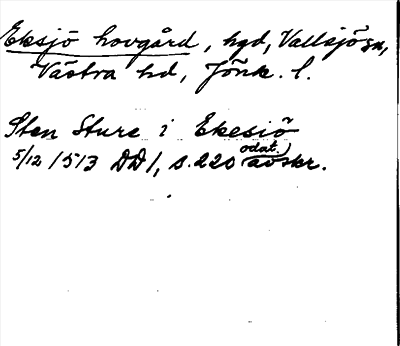 Eksjö hovgård, hgd, Vallsjö sn,
Västra hd, Jönk. l.
Sten Sture i Ekesiö
5/12 1513 DD1, s. 220 (odat.) avskr.